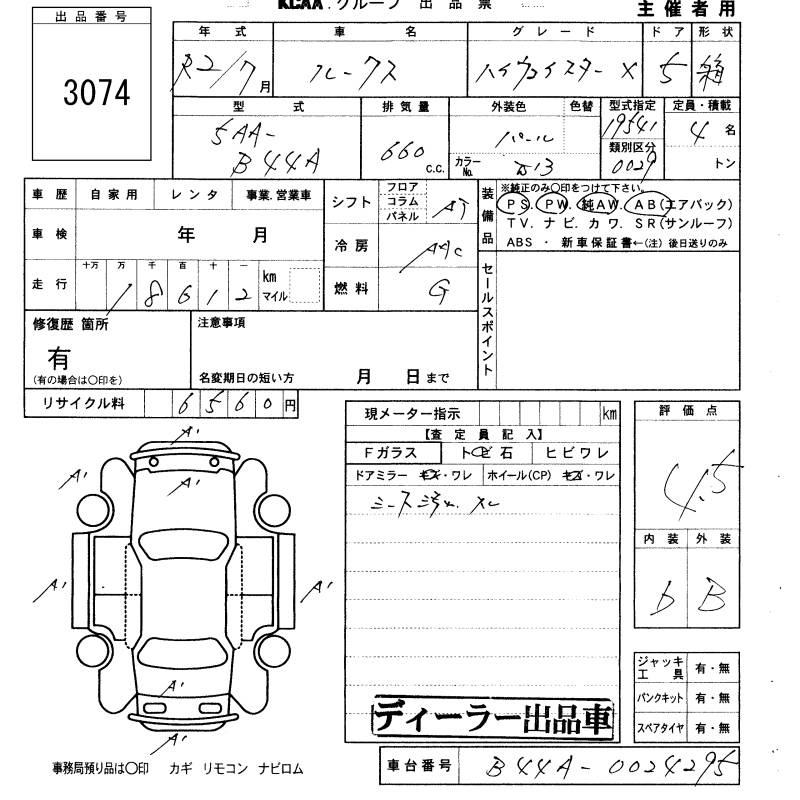 出品番号
3074
KCAA.グループ 出品票
主催者用
年式 車名 グレード ドア 形状
R2/7月 ルークス ハイウェイスター X 5 箱
型式 排気量 外装色 色替 型式指定 定員・積載
5AA-B44A 660 C.C. パール 19541 4名
カラーNo. 類別区分 0029 トン
車歴 自家用 レンタ 事業.営業車
シフト フロア コラム パネル AT
装備品 ※純正のみ〇印をつけて下さい。
PS. PW. 純AW. AB(エアバック)
TV. ナビ. カワ. SR(サンルーフ)
ABS ・ 新車保証書←(注) 後日送りのみ
車検 年 月
冷房 AAC
走行 十万 万 千 百 十 一 km マイル
18612
燃料 G
セールスポイント
修復歴 箇所
有
(有の場合は〇印を)
注意事項
名変期日の短い方 月 日まで
リサイクル料 6560円
現メーター指示 km
【査定員記入】
Fガラス トビ石 ヒビワレ
ドアミラー キズ・ワレ ホイール(CP) キズ・ワレ
評価点
4.5
内装 外装
b B
A'
A' A'
A' A'
A'
A'
ジャッキ工具 有・無
パンクキット 有・無
スペアタイヤ 有・無
ディーラー出品車
事務局預り品は〇印 カギ リモコン ナビロム
車台番号 B44A-0024295